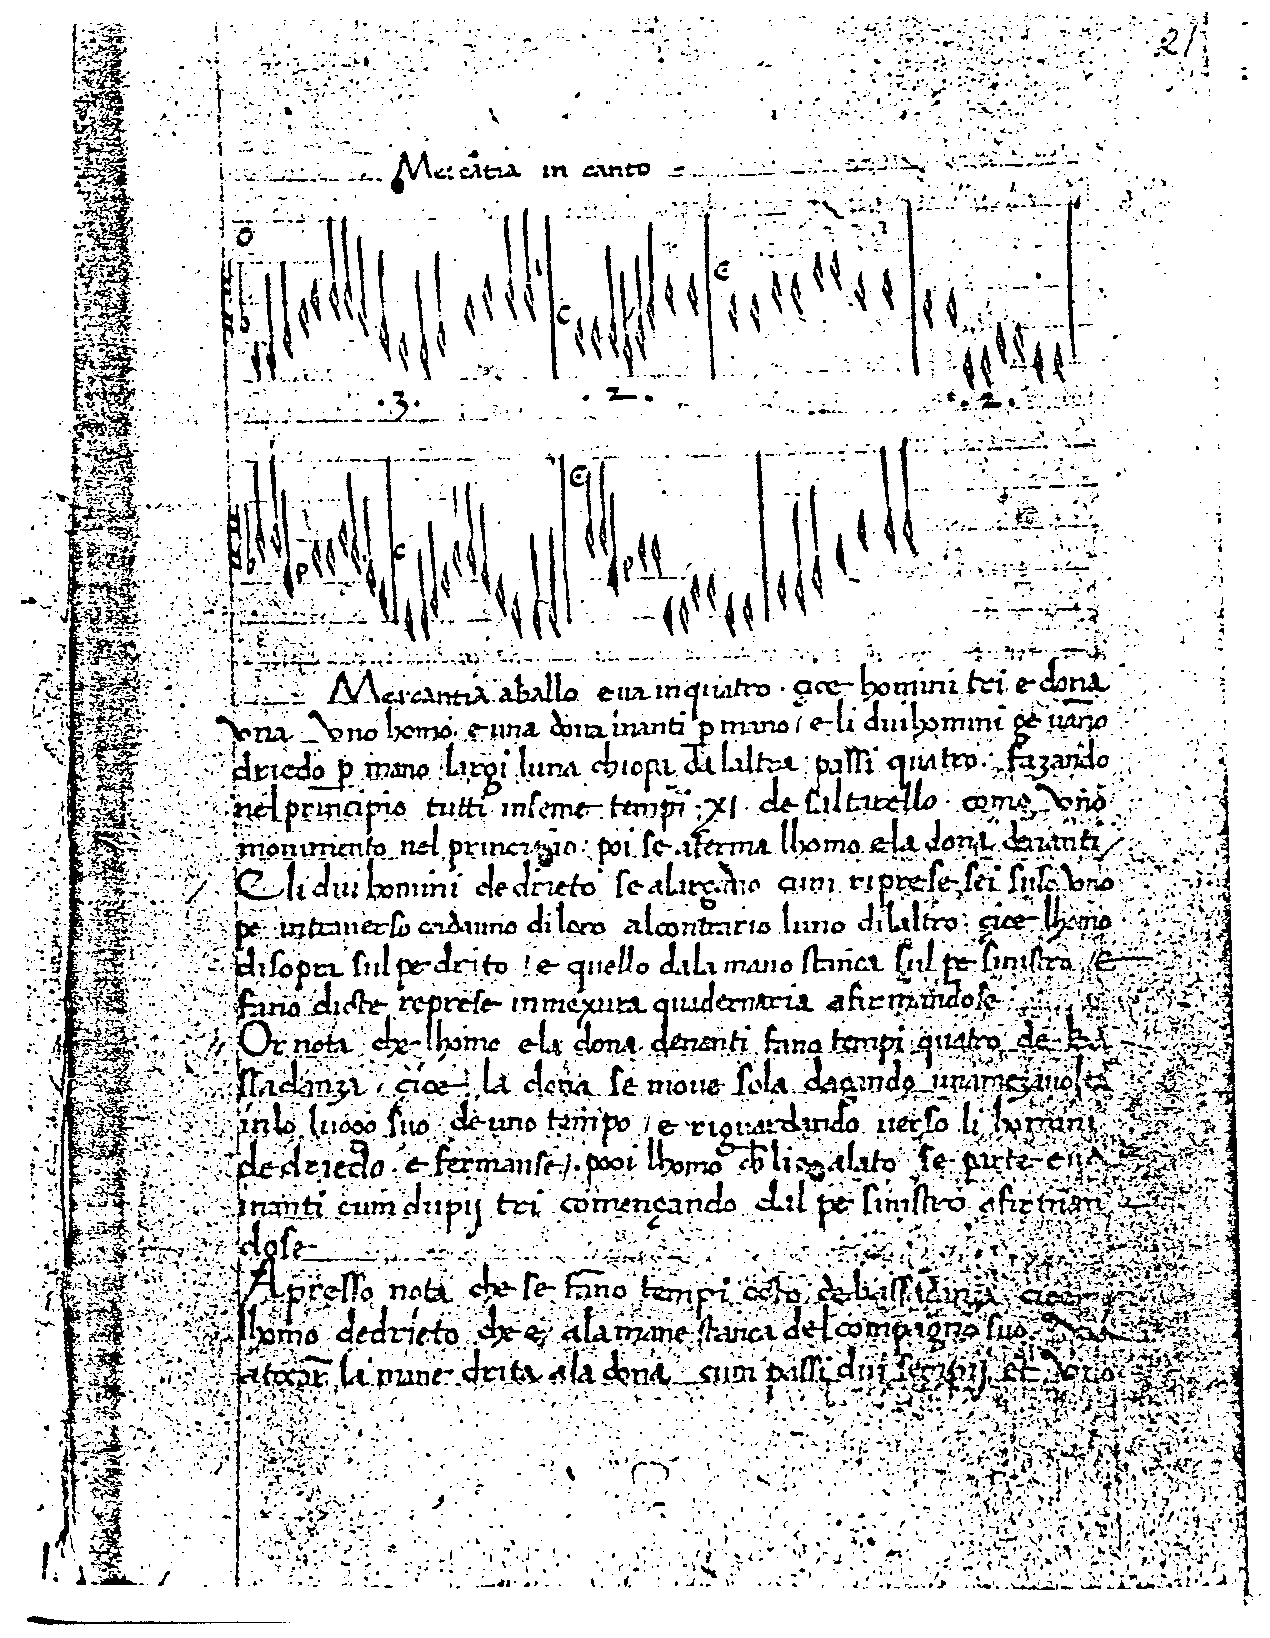 21
Mercātia in canto
.3. .2. .2.
Mercantia aballo e ua in quatro. çioe homini tri e dona
vna Vno homo. e una dona inanti p mano / e li dui homini gē uāno
driedo p mano largi luna chopia da laltra passi quatro. Fazando
nel principio tutti inseme tempi .XI. de saltarello. como Vno
mouimento nel principio. poi se aferma lhomo e la dona denanti /
E li dui homini dedrieto se alargāo cum riprese sei suso Vno
pe intrauerso cadauno di loro alcontrario luno dilaltro. çioe lhomo
disopra sul pe drito / e quello dala mano stanca sul pe sinistro / E
fano dicte represe in mexura quadernaria afirmandose
Or nota che lhomo e la dona denanti fano tempi quatro de ba
ssadanza, çioe / la dona se moue sola dagando una meza uolta
in lo luogo suo de uno tempo / e riguardando uerso li homini
dedriedo. e fermanse /. pooi lhomo che li e alato se parte e ua
inanti cum dupij tri començando dal pe sinistro afirman
dose
Apresso nota che se fano tempi octo de bassadanza çioe
lhomo dedrieto che e, ala mane stanca del compagno suo. Va
atochar la mane drita ala dona cum passi dui sempij et Vno